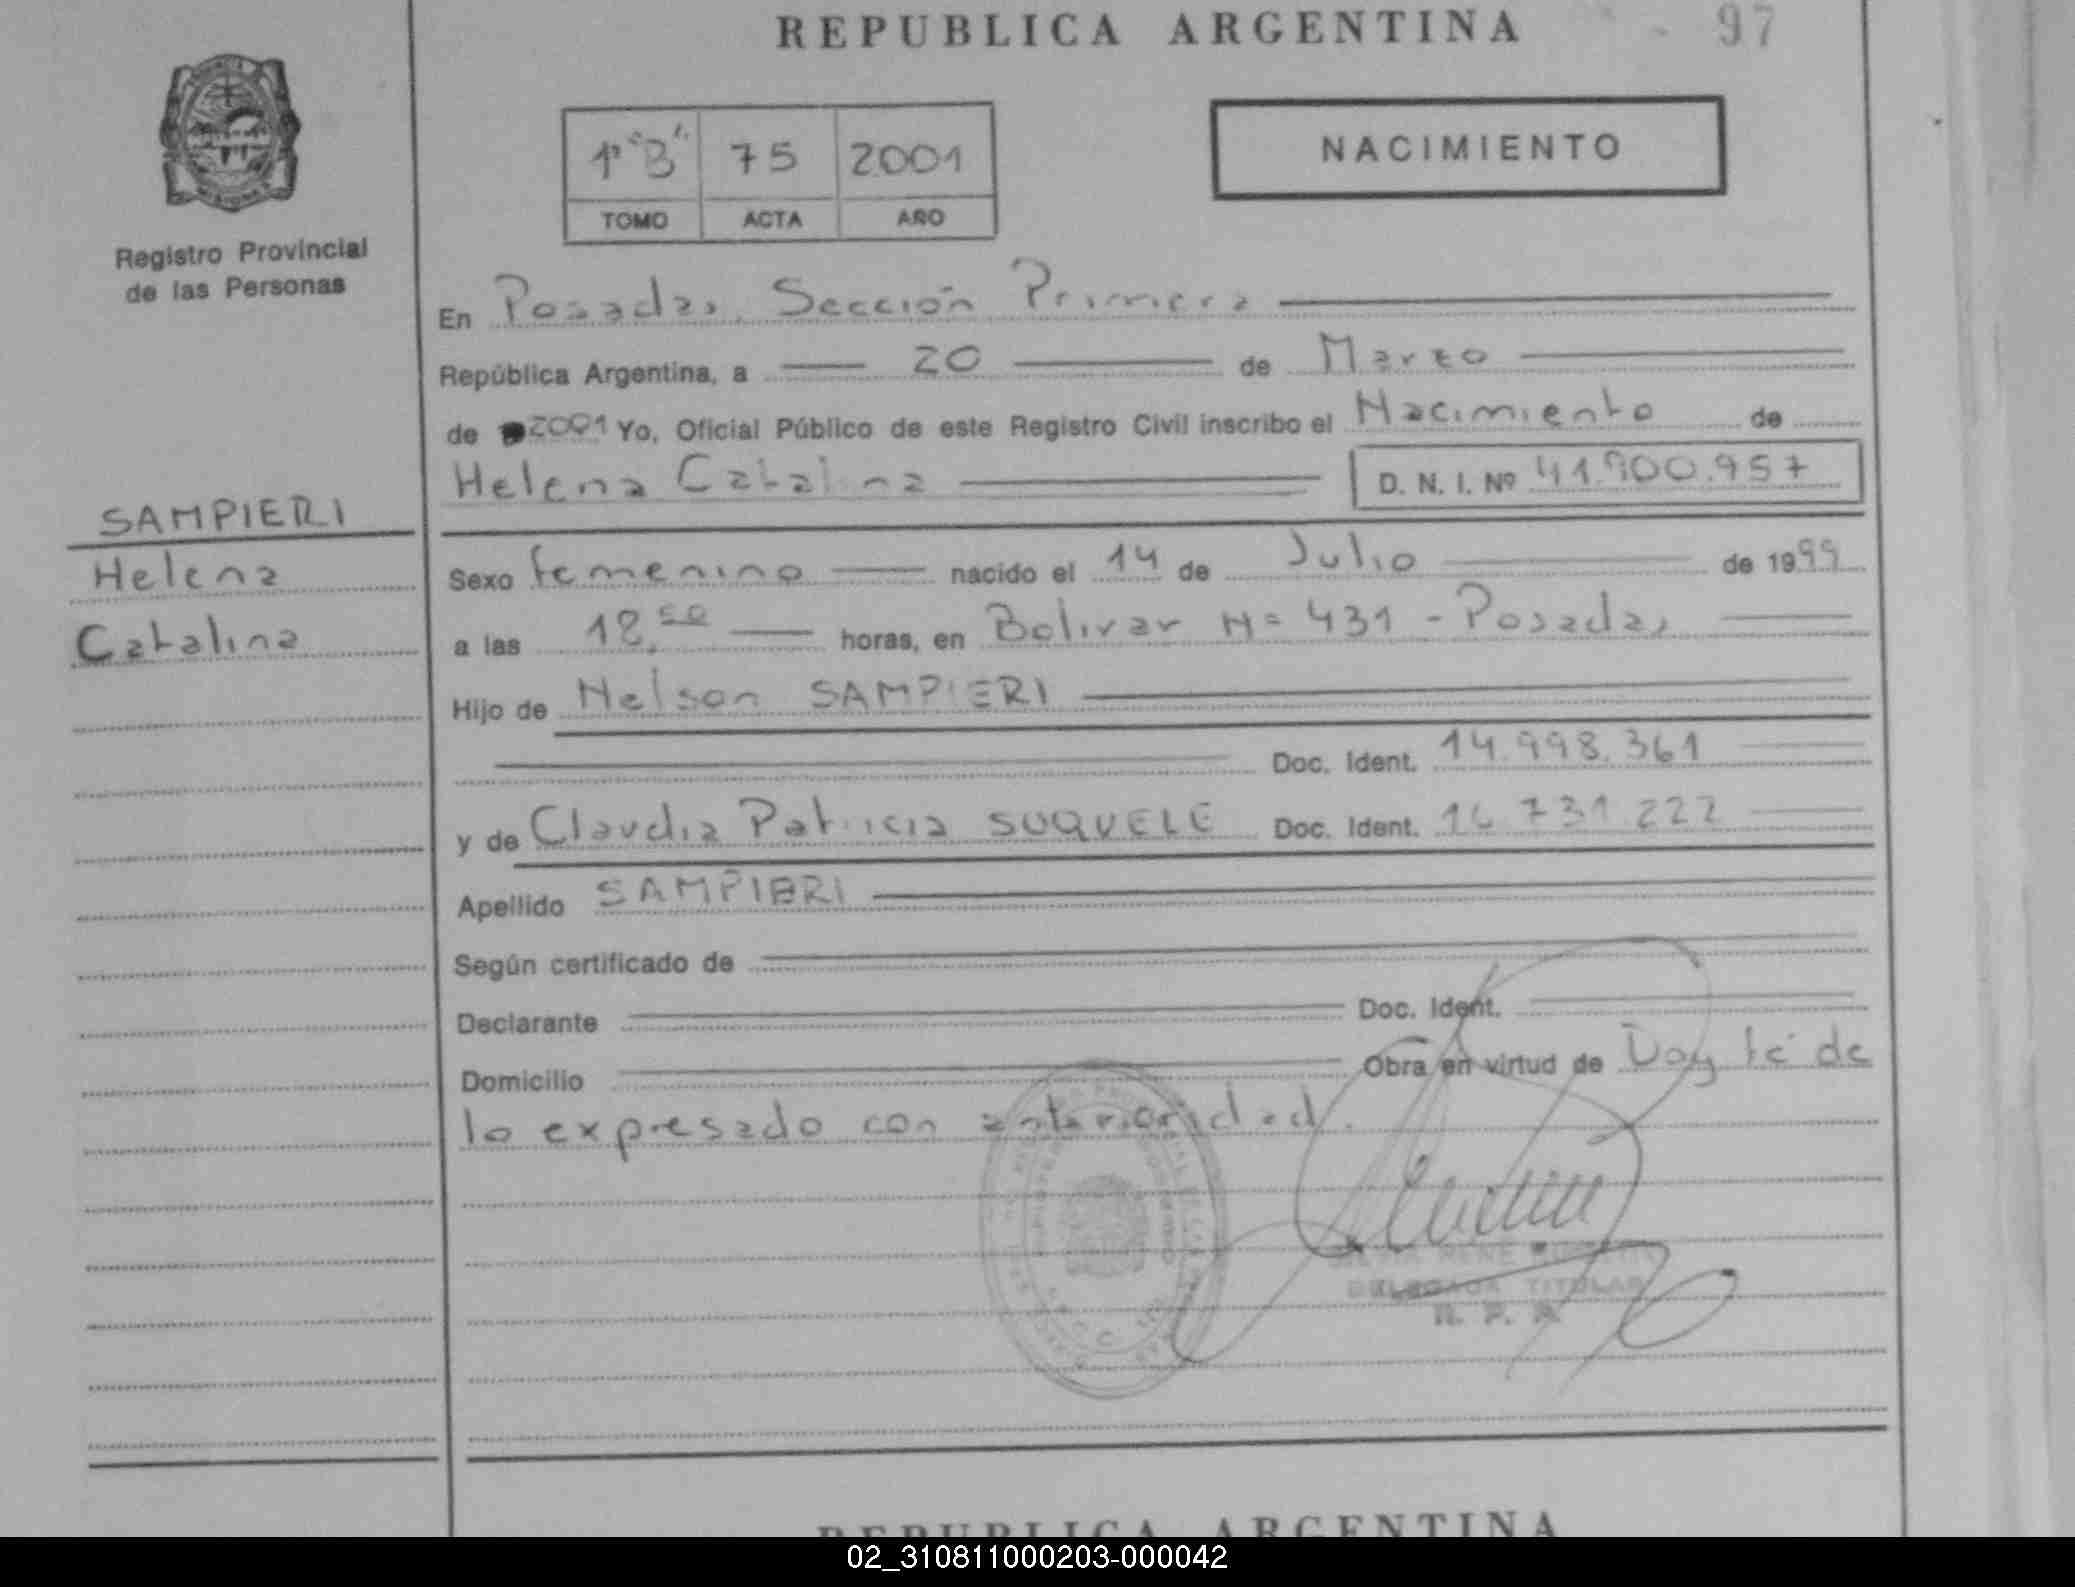 REPUBLICA ARGENTINA
97
1º "B" 75 2001
TOMO ACTA AÑO
NACIMIENTO
Registro Provincial
de las Personas
En Posadas, Sección Primera
República Argentina, a 20 de Marzo
de 2001 Yo, Oficial Público de este Registro Civil inscribo el Nacimiento de
Helena Catalina D. N. I. Nº 41.900.957
SAMPIERI
Helena
Catalina
Sexo femenino nacido el 14 de Julio de 1999
a las 18,50 horas, en Bolivar Nº 431 - Posadas
Hijo de Nelson SAMPIERI
Doc. Ident. 14.998.361
y de Claudia Patricia SUQUELE Doc. Ident. 16.731.222
Apellido SAMPIERI
Según certificado de
Declarante Doc. Ident.
Domicilio Obra en virtud de Doy fé de
lo expresado con anterioridad.
SILVIA RENE
DELEGADA TITULAR
R. P. P.
REPUBLICA ARGENTINA
02_310811000203-000042